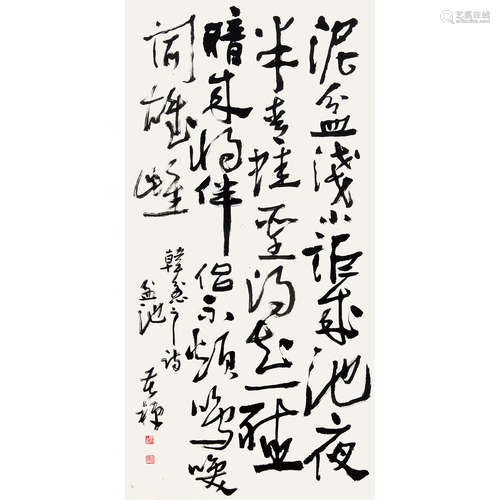 泥盆淺小詎成池夜
半青蛙聖得知一聽
暗來將伴侶不煩鳴喚
鬥雄雌
韓愈之詩
盆池